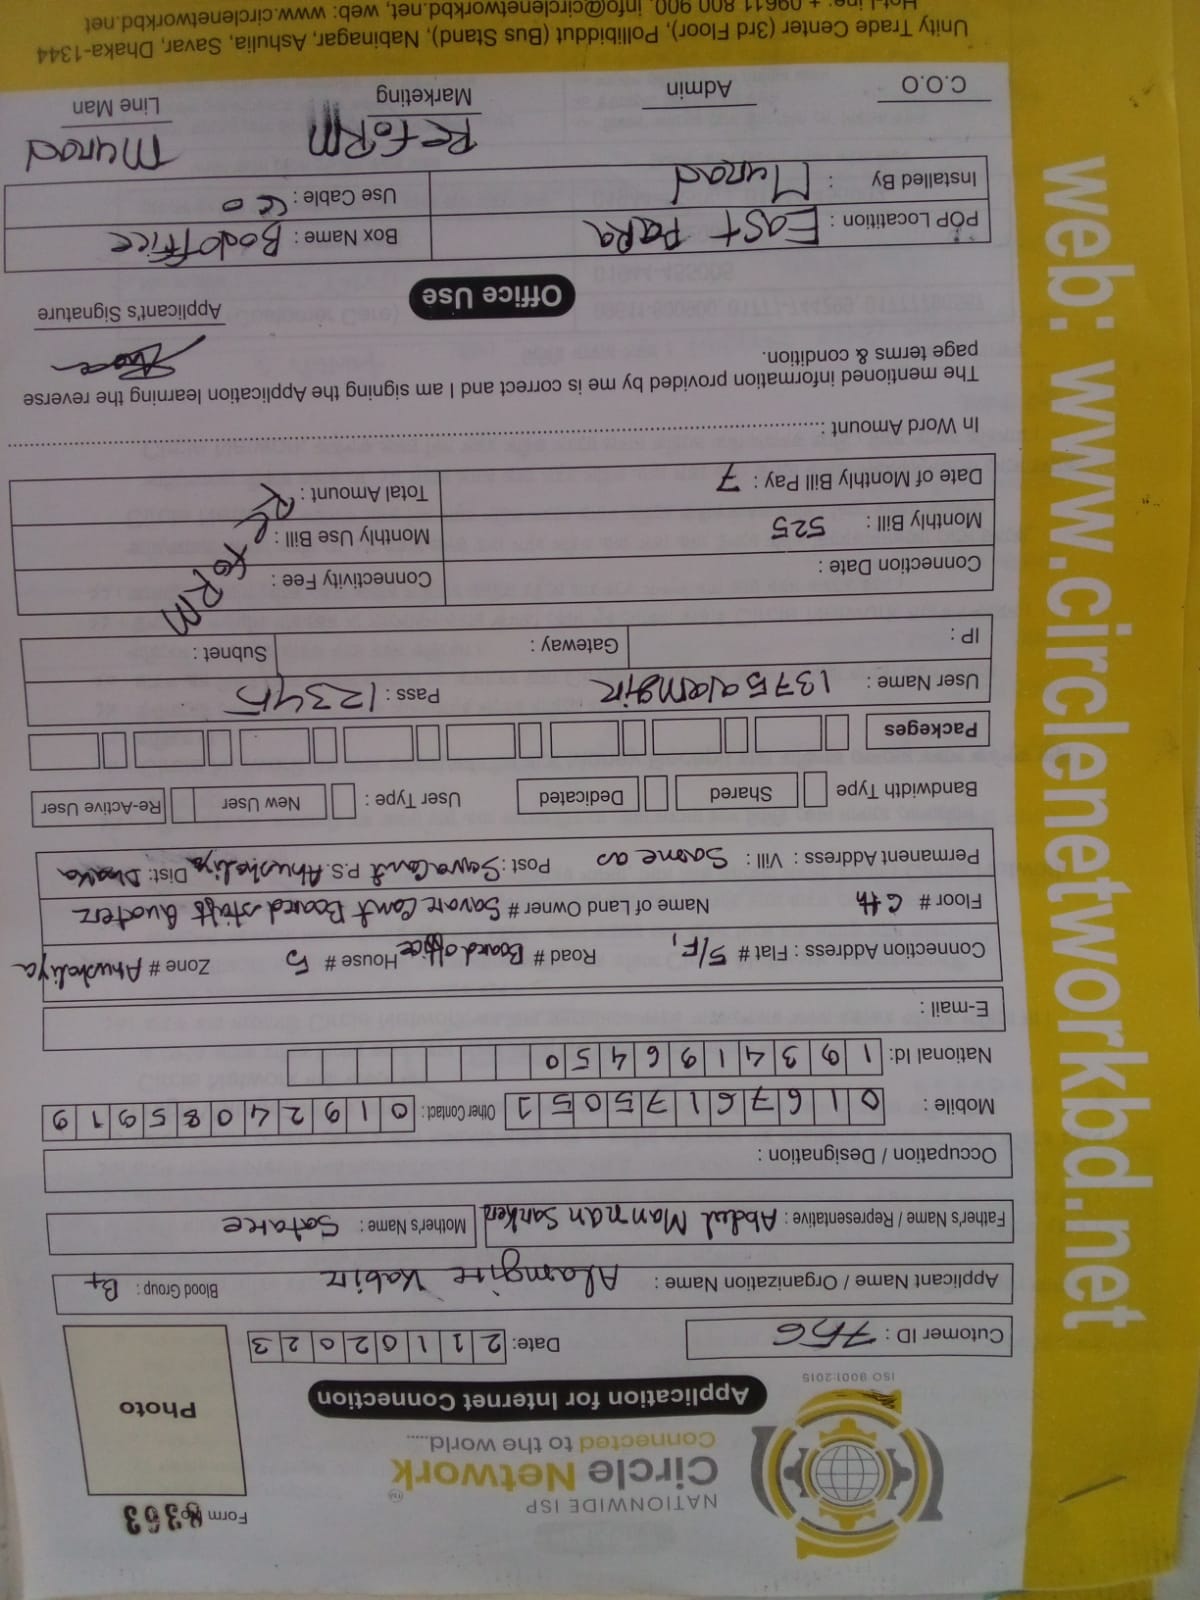 NATIONWIDE ISP
Circle Network™
Connected to the world.....
ISO 9001:2015
Form No 8363
Photo
Application for Internet Connection
Cutomer ID : 756 Date: 21102023
Applicant Name / Organization Name : Alamgir Kabir Blood Group : B+
Father's Name / Representative : Abdul Mannan Sarker Mother's Name :
Occupation / Designation :
Mobile : 01676175051 Other Contact : 01924085919
National Id: 1934196450
E-mail :
Connection Address : Flat # 5/F, Road # Board office House # 5 Zone # Ahusholiya
Floor # 6th Name of Land Owner # Savare Cant Board staff Quoterz
Permanent Address : Vill : Same as Post : P.S. Ahusholiya Dist: Dhaka
Bandwidth Type Shared Dedicated User Type : New User Re-Active User
Packeges
User Name : 1375alamgir Pass : 12345
IP : Gateway : Subnet :
Connection Date : Connectivity Fee :
Monthly Bill : 525 Monthly Use Bill :
Date of Monthly Bill Pay : 7 Total Amount :
RefoRM
In Word Amount :
The mentioned information provided by me is correct and I am signing the Application learning the reverse
page terms & condition.
Applicant's Signature
Office Use
POP Locatition : East PaRa Box Name : BodOffice
Installed By : Murad Use Cable :
ReFoRM Murad
C.O.O Admin Marketing Line Man
Unity Trade Center (3rd Floor), Pollibiddut (Bus Stand), Nabinagar, Ashulia, Savar, Dhaka-1344
Hot-Line: + 09611 800 900, info@circlenetworkbd.net, web: www.circlenetworkbd.net
web: www.circlenetworkbd.net